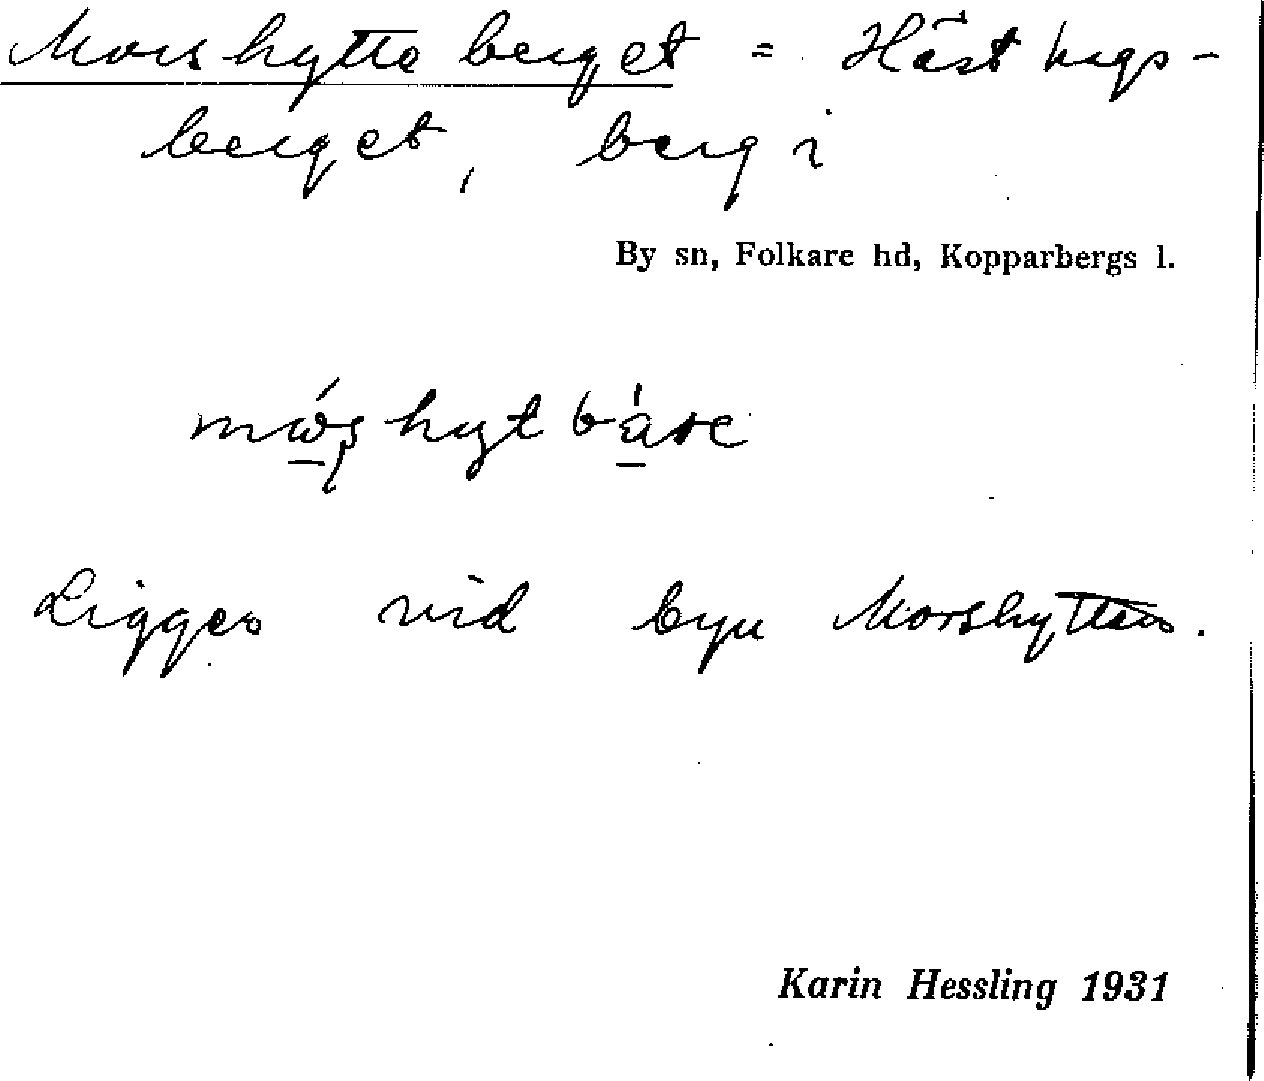 Morshytteberget = Hästhags-
berget, berg i
By sn, Folkare hd, Kopparbergs l.
Ligger vid byn Morshyttan.
Karin Hessling 1931